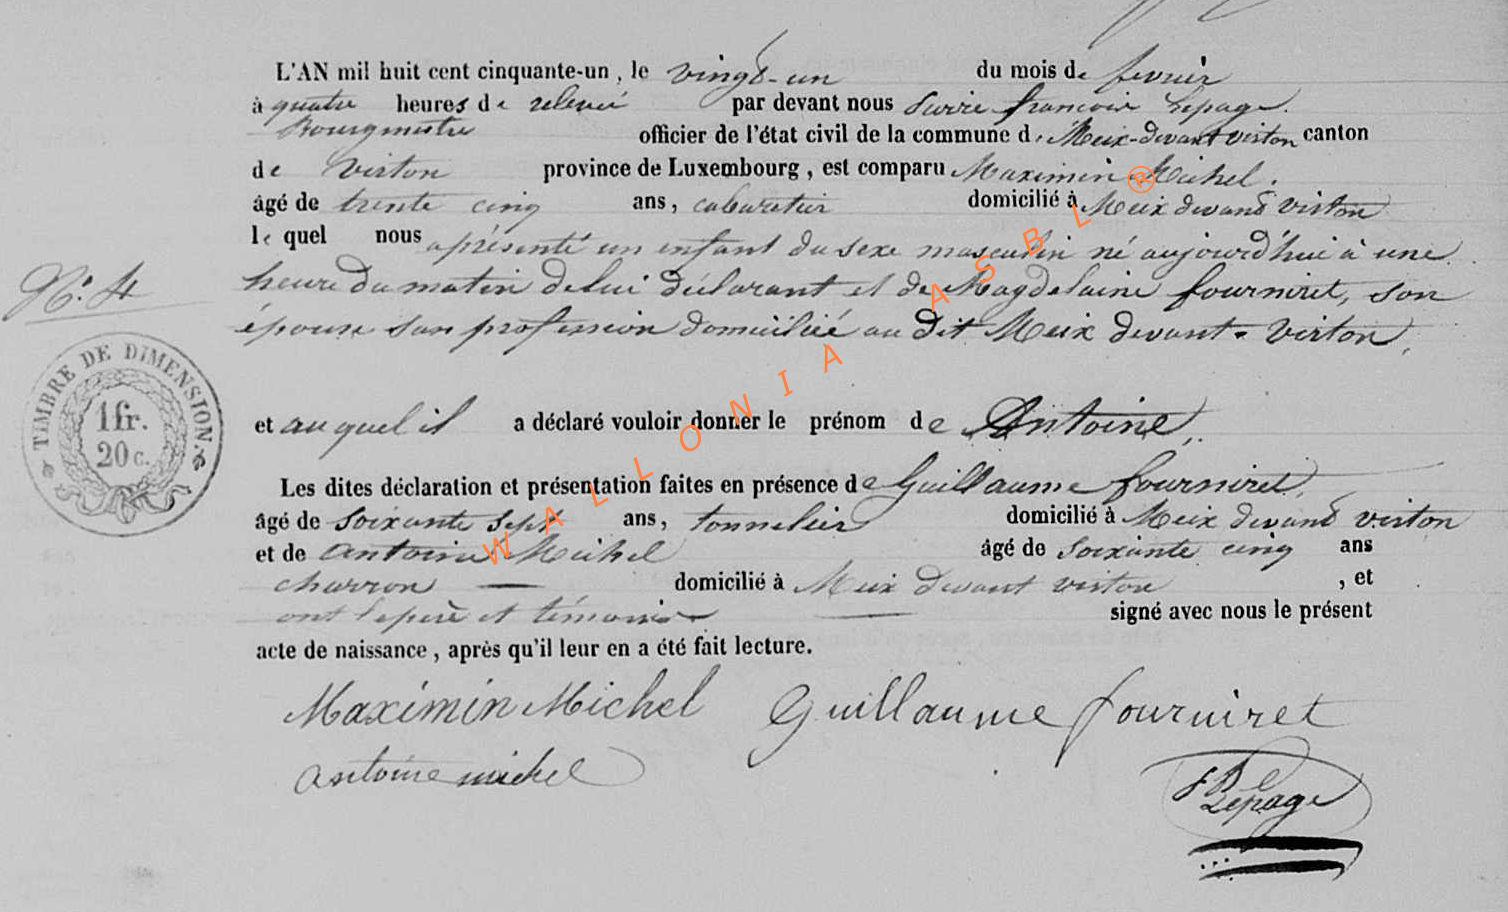 L'AN mil huit cent cinquante-un, le vingt-un du mois de fevrier
à quatre heures de relevée par devant nous Pierre françois Lepage.
Bourgmestre officier de l'état civil de la commune de Meix-devant virton canton
de Virton province de Luxembourg, est comparu Maximin Michel.
âgé de trente cinq ans, cabaretier domicilié à Meix devant virton
le quel nous a présenté un enfant du sexe masculin né aujourd'hui à une
heure du matin de lui déclarant et de Magdelaine fourniret, son
N.° 4
épouse sans profession domiciliée au dit Meix devant-virton,
TIMBRE DE DIMENSION.
1 fr.
20 c.
et auquel il a déclaré vouloir donner le prénom de Antoine,
Les dites déclaration et présentation faites en présence de Guillaume fourniret,
âgé de soixante sept ans, tonnelier domicilié à Meix devant virton
et de antoine Michel âgé de soixante cinq ans
charron domicilié à Meix devant virton, et
ont le père et témoins signé avec nous le présent
acte de naissance, après qu'il leur en a été fait lecture.
Maximin Michel Guillaume fourniret
antoine michel
Lepage
WALLONIA ASBL ®